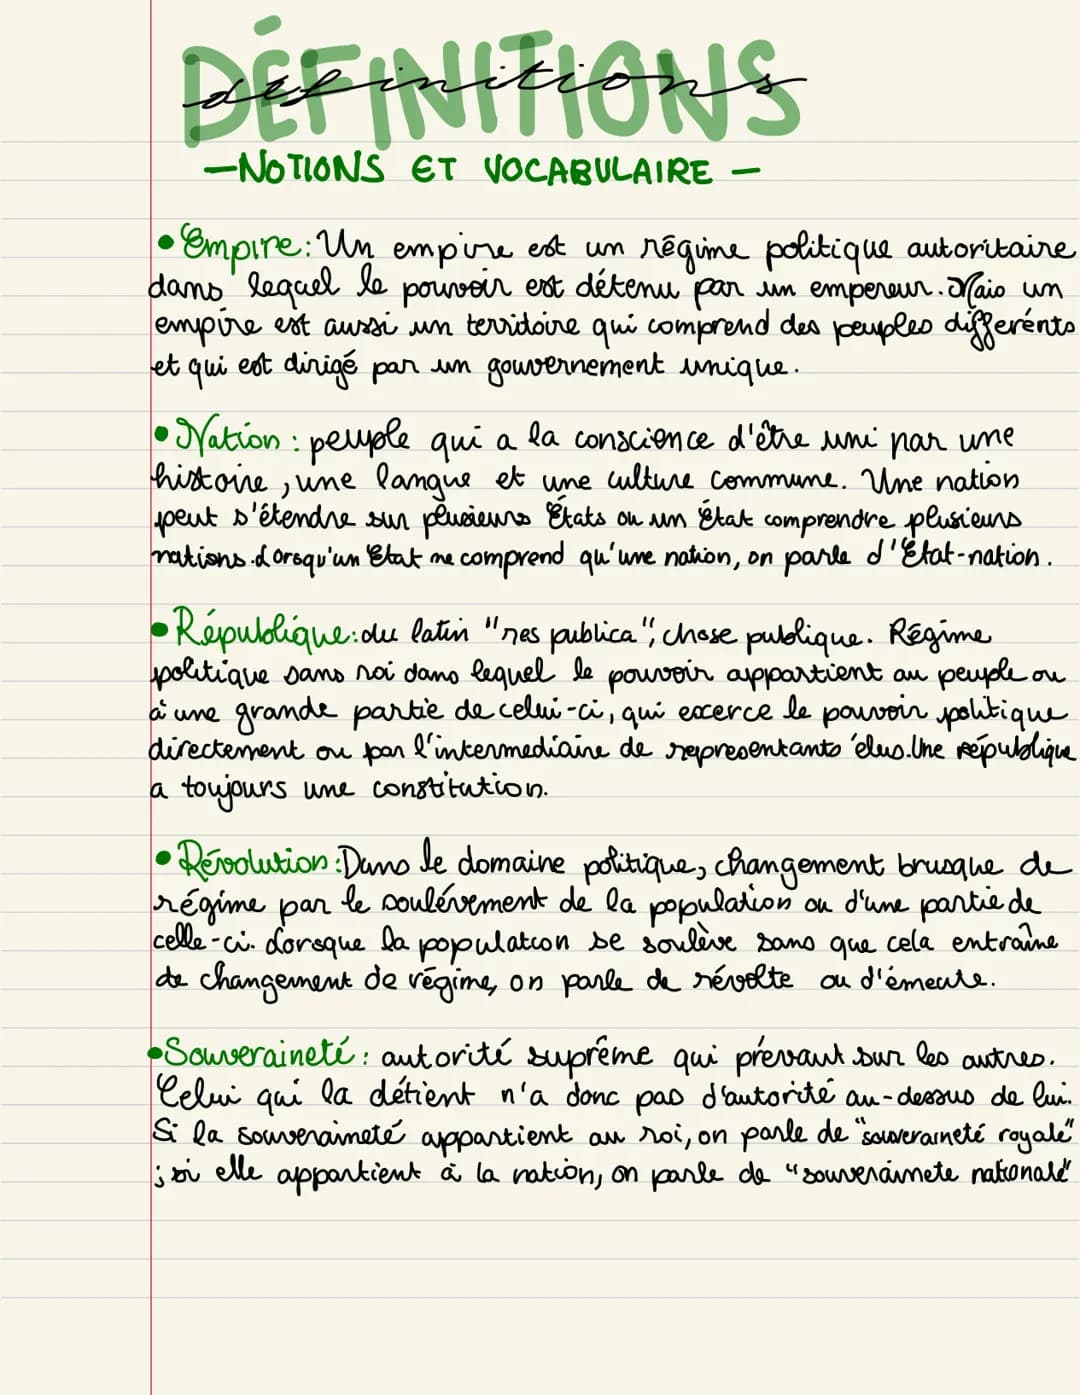 DÉFINITIONS
définitions
-NOTIONS ET VOCABULAIRE -
• Empire: Un empire est un régime politique autoritaire
dans lequel le pouvoir est détenu par un empereur. Mais un
empire est aussi un territoire qui comprend des peuples différents
et qui est dirigé par un gouvernement unique.
• Nation : peuple qui a la conscience d'être uni par une
histoire, une langue et une culture commune. Une nation
peut s'étendre sur plusieurs États ou un État comprendre plusieurs
nations. Lorsqu'un Etat ne comprend qu'une nation, on parle d'État-nation.
• République: du latin "res publica", chose publique. Régime
politique sans roi dans lequel le pouvoir appartient au peuple ou
à une grande partie de celui-ci, qui excerce le pouvoir politique
directement ou par l'intermediaire de representants élus. Une république
a toujours une constitution.
• Révolution : Dans le domaine politique, changement brusque de
régime par le soulévement de la population ou d'une partie de
celle-ci. Lorsque la population se soulève sans que cela entraîne
de changement de régime, on parle de révolte ou d'émeute.
• Souveraineté : autorité suprême qui prévaut sur les autres.
Celui qui la détient n'a donc pas d'autorité au-dessus de lui.
Si la souveraineté appartient au roi, on parle de "souveraineté royale"
; si elle appartient à la nation, on parle de "souveraineté nationale"